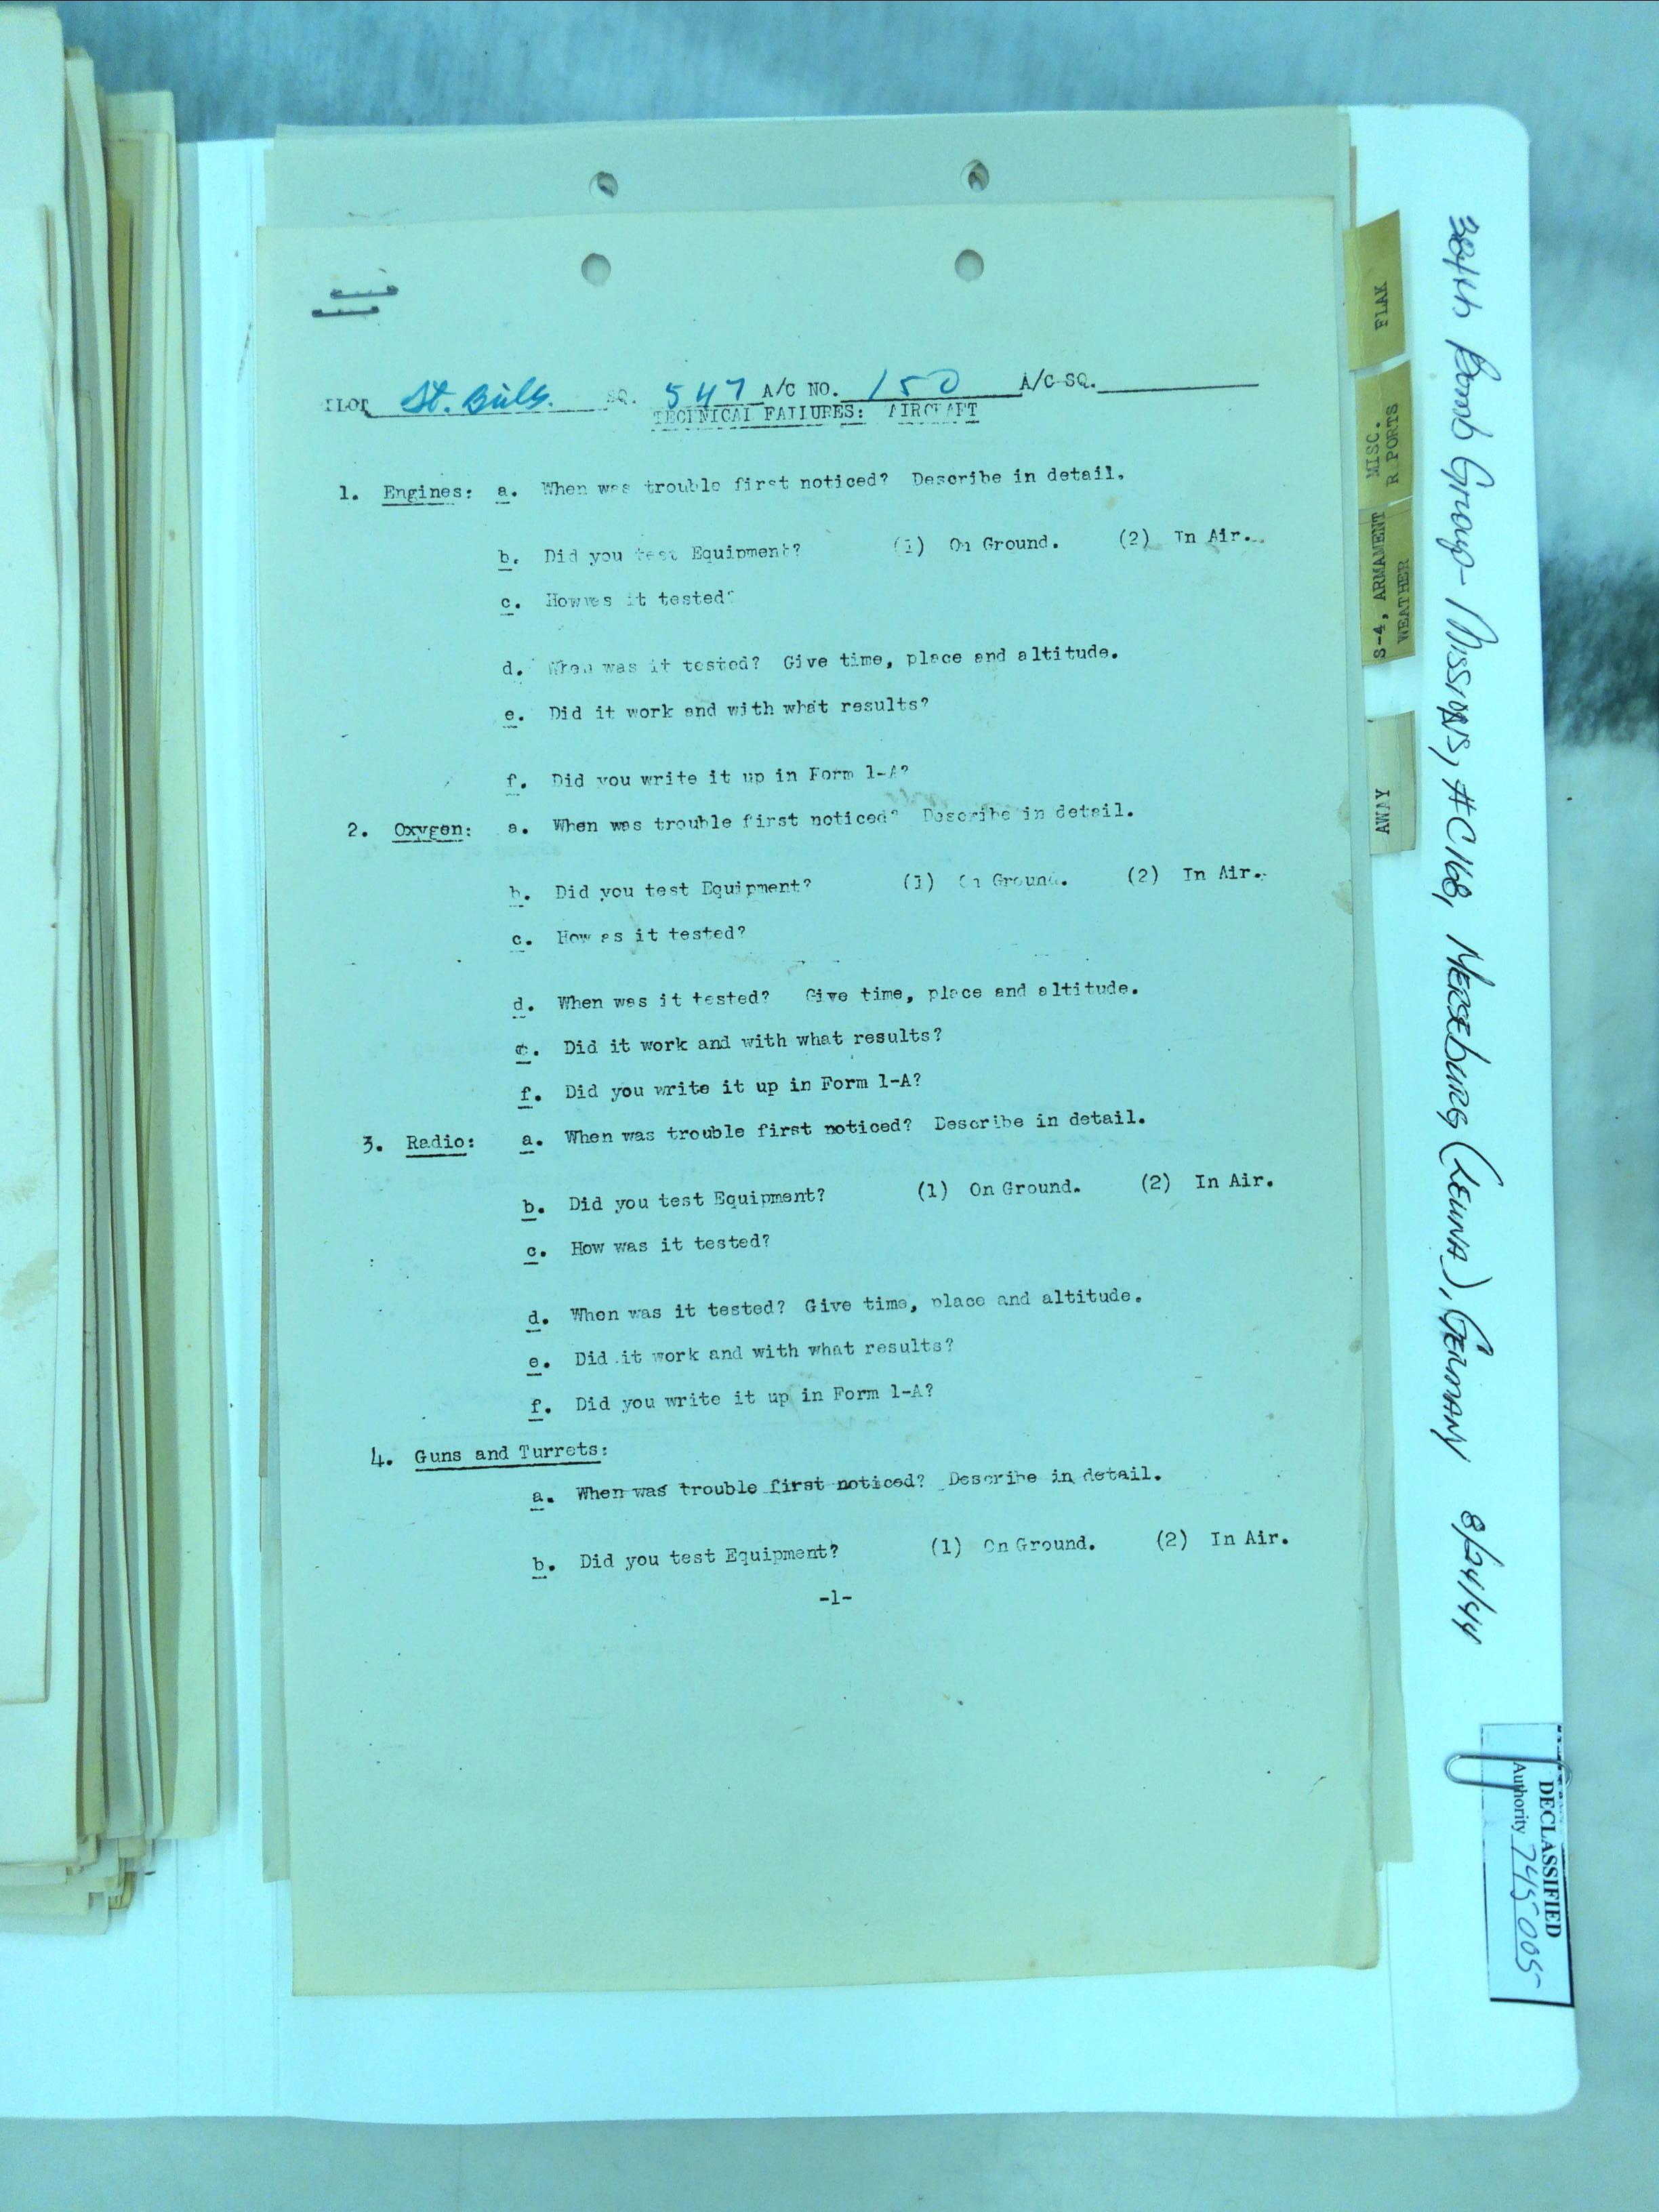 ILOT St. Bils. SQ. 547 A/C NO. 150 A/C SQ.
TECHNICAL FAILURES: AIRCRAFT
1. Engines: a. When was trouble first noticed? Describe in detail.
b. Did you test Equipment? (1) On Ground. (2) In Air.
c. How was it tested?
d. When was it tested? Give time, place and altitude.
e. Did it work and with what results?
f. Did you write it up in Form 1-A?
2. Oxygen: a. When was trouble first noticed? Describe in detail.
b. Did you test Equipment? (1) On Ground. (2) In Air.
c. How as it tested?
d. When was it tested? Give time, place and altitude.
e. Did it work and with what results?
f. Did you write it up in Form 1-A?
3. Radio: a. When was trouble first noticed? Describe in detail.
b. Did you test Equipment? (1) On Ground. (2) In Air.
c. How was it tested?
d. When was it tested? Give time, place and altitude.
e. Did it work and with what results?
f. Did you write it up in Form 1-A?
4. Guns and Turrets:
a. When was trouble first noticed? Describe in detail.
b. Did you test Equipment? (1) On Ground. (2) In Air.
-1-
FLAK
MISC.
R PORTS
S-4, ARMAMENT
WEATHER
AWAY
384th Bomb Group - Missions, #C168, Merseburg (Leuna), Germany 8/24/44
DECLASSIFIED
Authority 745005